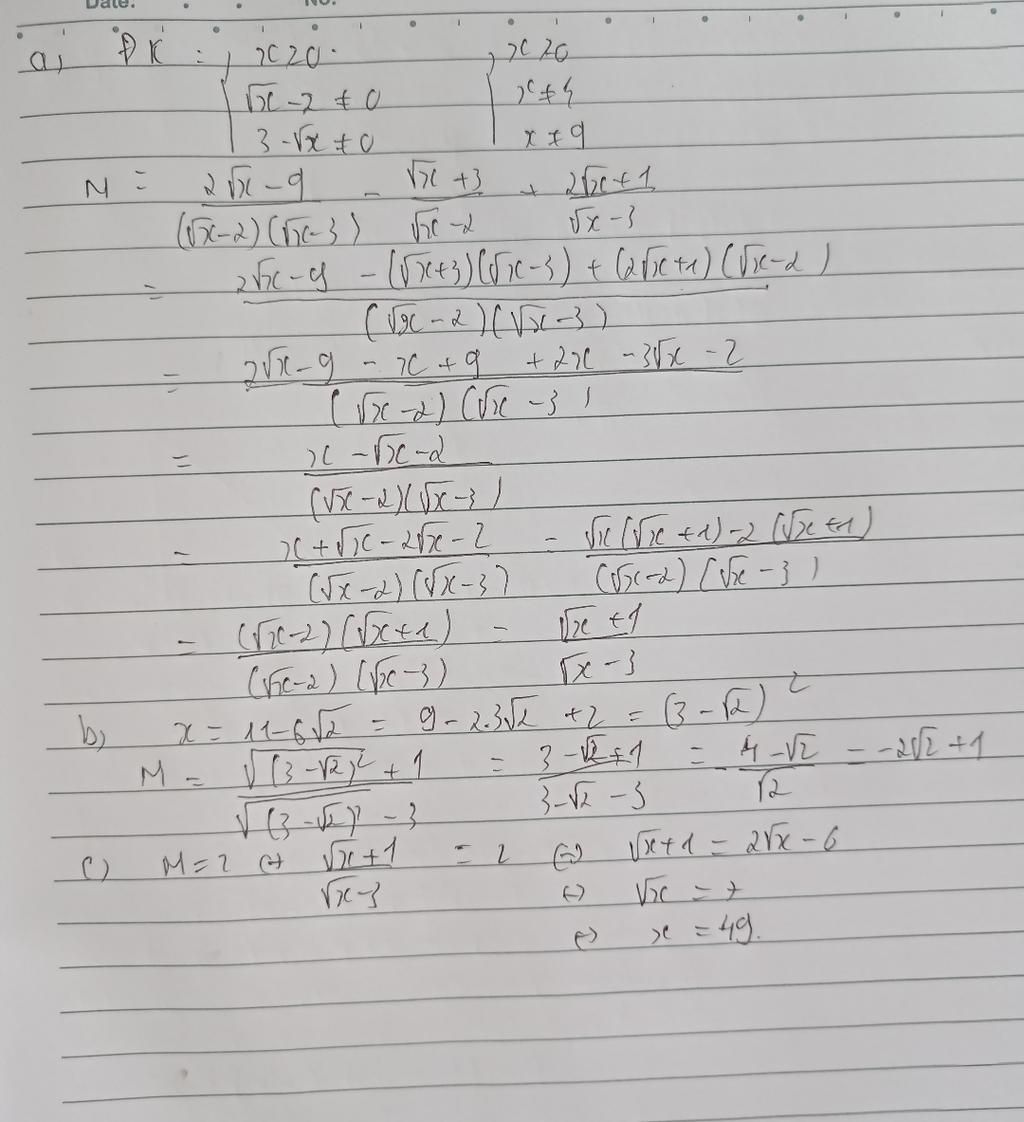 Date: No:
a, ĐK : x ≥ 0. x ≥ 0
√x - 2 ≠ 0 x ≠ 4
3 - √x ≠ 0 x ≠ 9
M = (2√x - 9)/((√x-2)(√x-3)) - (√x + 3)/(√x - 2) + (2√x + 1)/(√x - 3)
= (2√x - 9 - (√x+3)(√x-3) + (2√x+1)(√x-2))/((√x - 2)(√x - 3))
= (2√x - 9 - x + 9 + 2x - 3√x - 2)/((√x - 2)(√x - 3))
= (x - √x - 2)/((√x - 2)(√x - 3))
= (x + √x - 2√x - 2)/((√x - 2)(√x - 3)) = (√x(√x + 1) - 2(√x + 1))/((√x - 2)(√x - 3))
= ((√x - 2)(√x + 1))/((√x - 2)(√x - 3)) = (√x + 1)/(√x - 3)
b, x = 11 - 6√2 = 9 - 2.3√2 + 2 = (3 - √2)²
M = (√(3 - √2)² + 1)/(√(3 - √2)² - 3) = (3 - √2 + 1)/(3 - √2 - 3) = - (4 - √2)/√2 = -2√2 + 1
c) M = 2 ⇔ (√x + 1)/(√x - 3) = 2 ⇔ √x + 1 = 2√x - 6
⇔ √x = 7
⇔ x = 49.